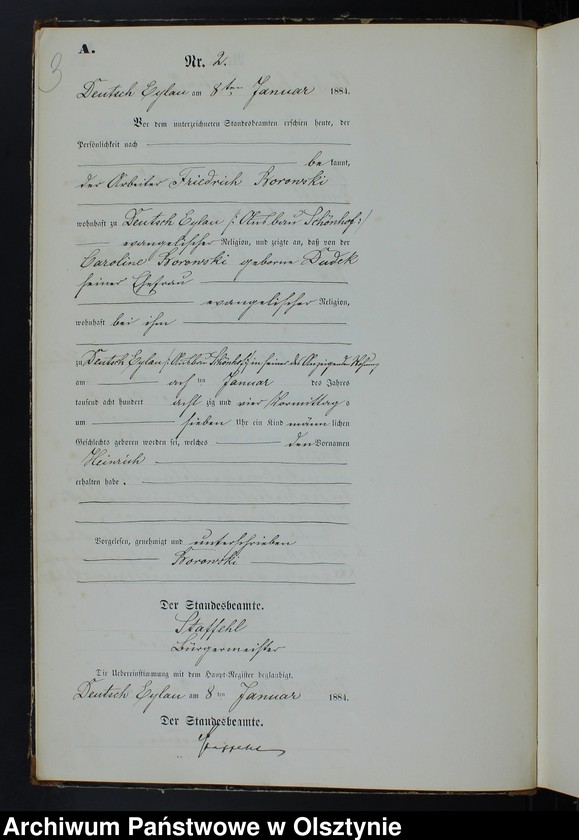 3
A.
Nr. 2.
Deutsch Eylau am 8ten Januar 1884.
Vor dem unterzeichneten Standesbeamten erschien heute, der
Persönlichkeit nach
be kannt,
der Arbeiter Friedrich Korowski
wohnhaft zu Deutsch Eylau /: Ausbau Schönhof :/
evangelischer Religion, und zeigte an, daß von der
Caroline Korowski geborne Dudek
seiner Ehefrau
evangelischer Religion,
wohnhaft bei ihm
zu Deutsch Eylau /: Ausbau Schönhof :/ in seiner des Anzeigenden Wohnung
am acht ten Januar des Jahres
tausend acht hundert acht zig und vier Vormittags
um sieben Uhr ein Kind männ lichen
Geschlechts geboren worden sei, welches den Vornamen
Heinrich
erhalten habe.
Vorgelesen, genehmigt und unterschrieben
Korowski
Der Standesbeamte.
Staffehl
Bürgermeister
Die Uebereinstimmung mit dem Haupt-Register beglaubigt.
Deutsch Eylau am 8 ten Januar 1884.
Der Standesbeamte.
Staffehl
Archiwum Państwowe w Olsztynie